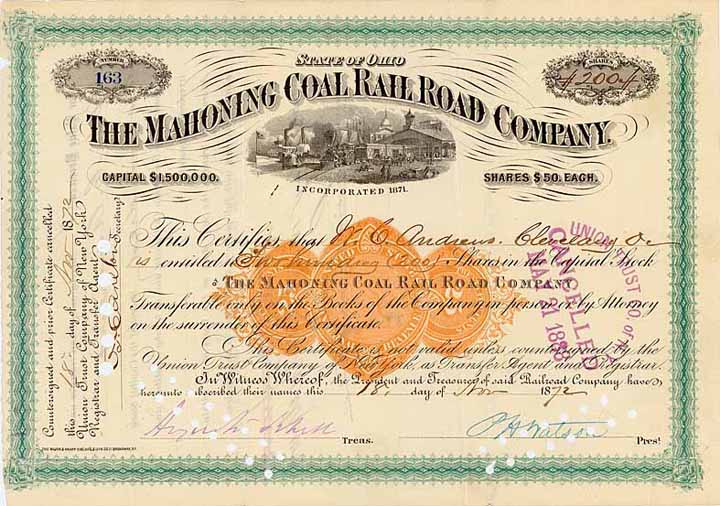 NUMBER
163
STATE OF OHIO
SHARES
200
THE MAHONING COAL RAIL ROAD COMPANY.
CAPITAL $1,500,000.
SHARES $50. EACH.
INCORPORATED 1871.
This Certifies, that W. C. Andrews. Cleveland O
is entitled to Two hundred Shares in the Capital Stock
of THE MAHONING COAL RAIL ROAD COMPANY
Transferable only on the Books of the Company in person or by Attorney
on the surrender of this Certificate.
This Certificate is not valid unless countersigned by the
Union Trust Company of New York, as Transfer Agent and Registrar.
In Witness Whereof, the President and Treasurer of said Railroad Company have
hereunto subscribed their names this 18. day of Nov 1872
Treas.
P H Watson
Prest
Countersigned and prior Certificate cancelled
this 18. day of Nov 1872
Union Trust Company of New York
Registrar and Transfer Agent
Secretary
UNION TRUST CO OF N.Y.
CANCELLED